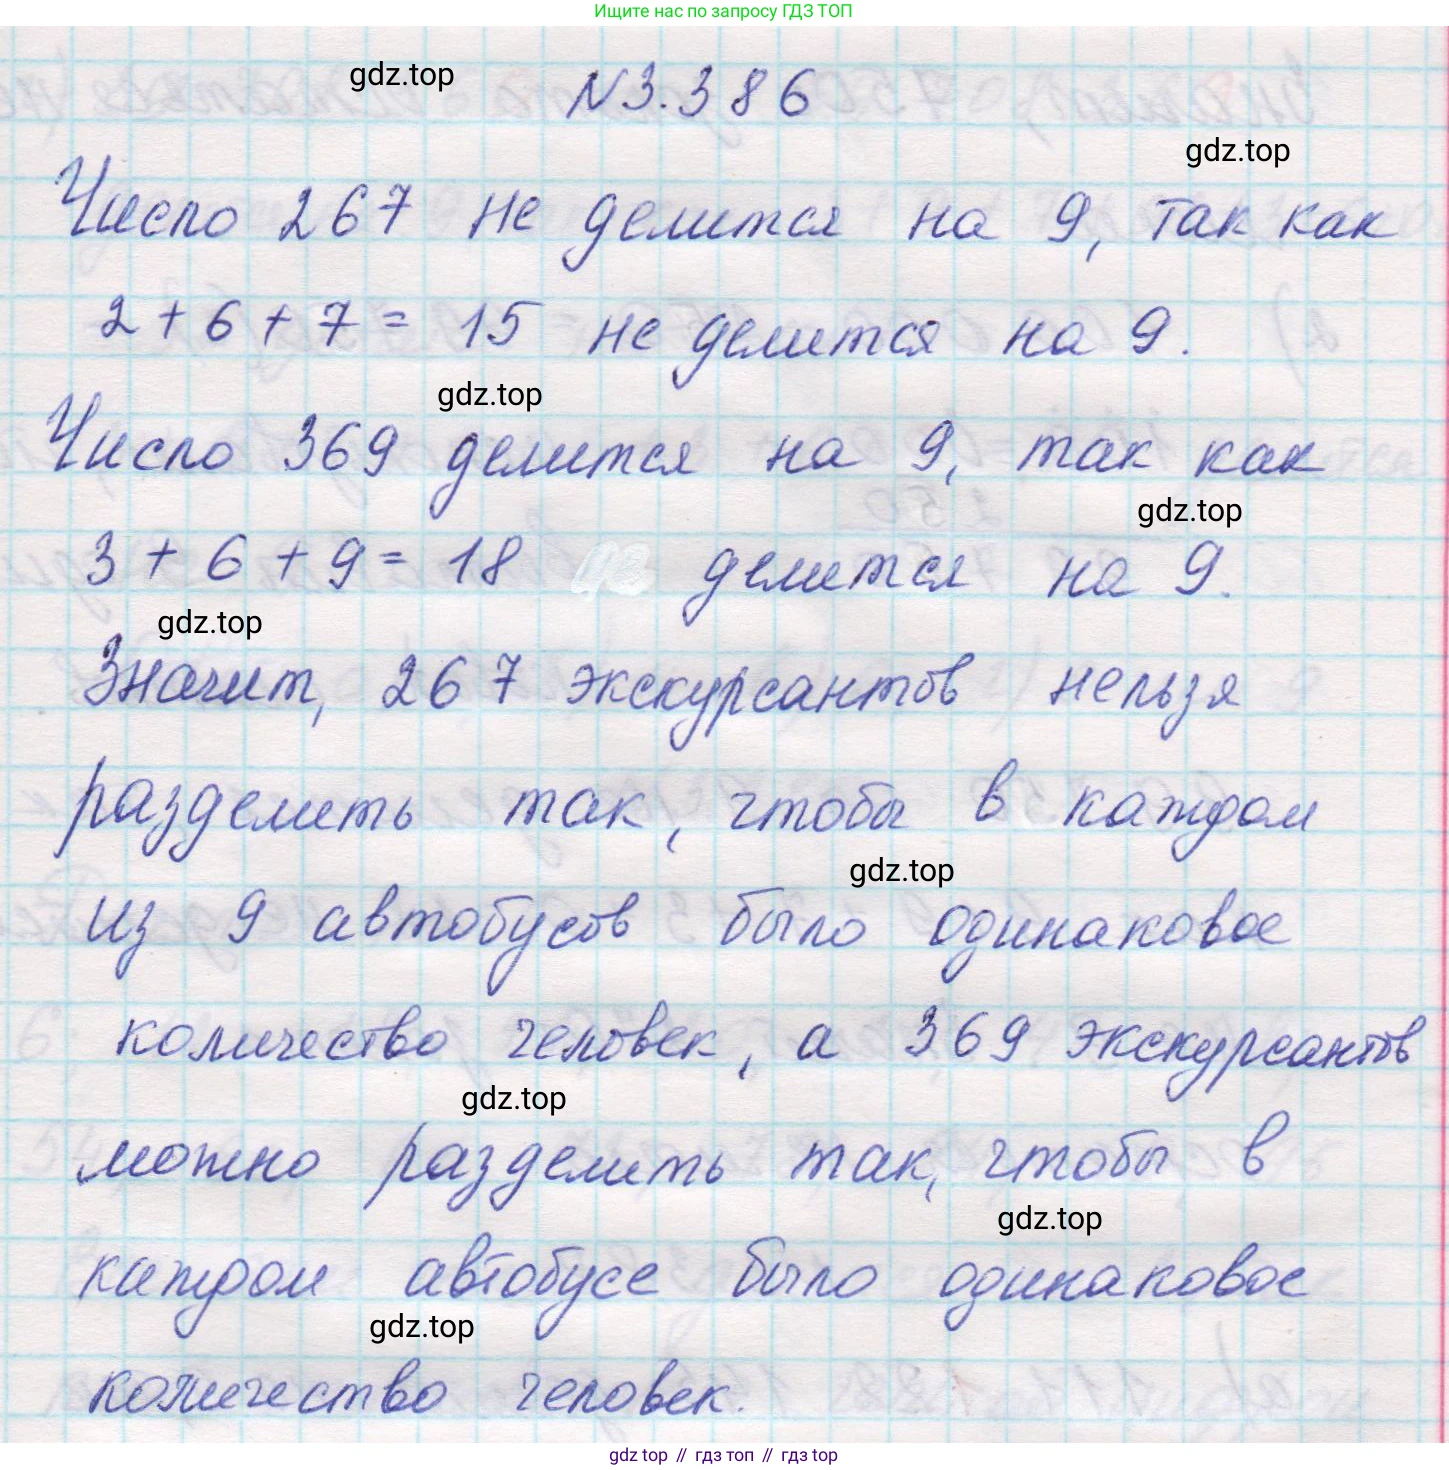 Ищите нас по запросу ГДЗ ТОП
gdz.top
N3.386
gdz.top
Число 267 не делится на 9, так как
2 + 6 + 7 = 15 не делится на 9.
gdz.top
Число 369 делится на 9, так как
gdz.top
3 + 6 + 9 = 18 делится на 9.
gdz.top
Значит, 267 экскурсантов нельзя
разделить так, чтобы в каждом
gdz.top
из 9 автобусов было одинаковое
количество человек, а 369 экскурсантов
gdz.top
можно разделить так, чтобы в
gdz.top
каждом автобусе было одинаковое
gdz.top
количество человек.
gdz top // гдз топ // гдз top